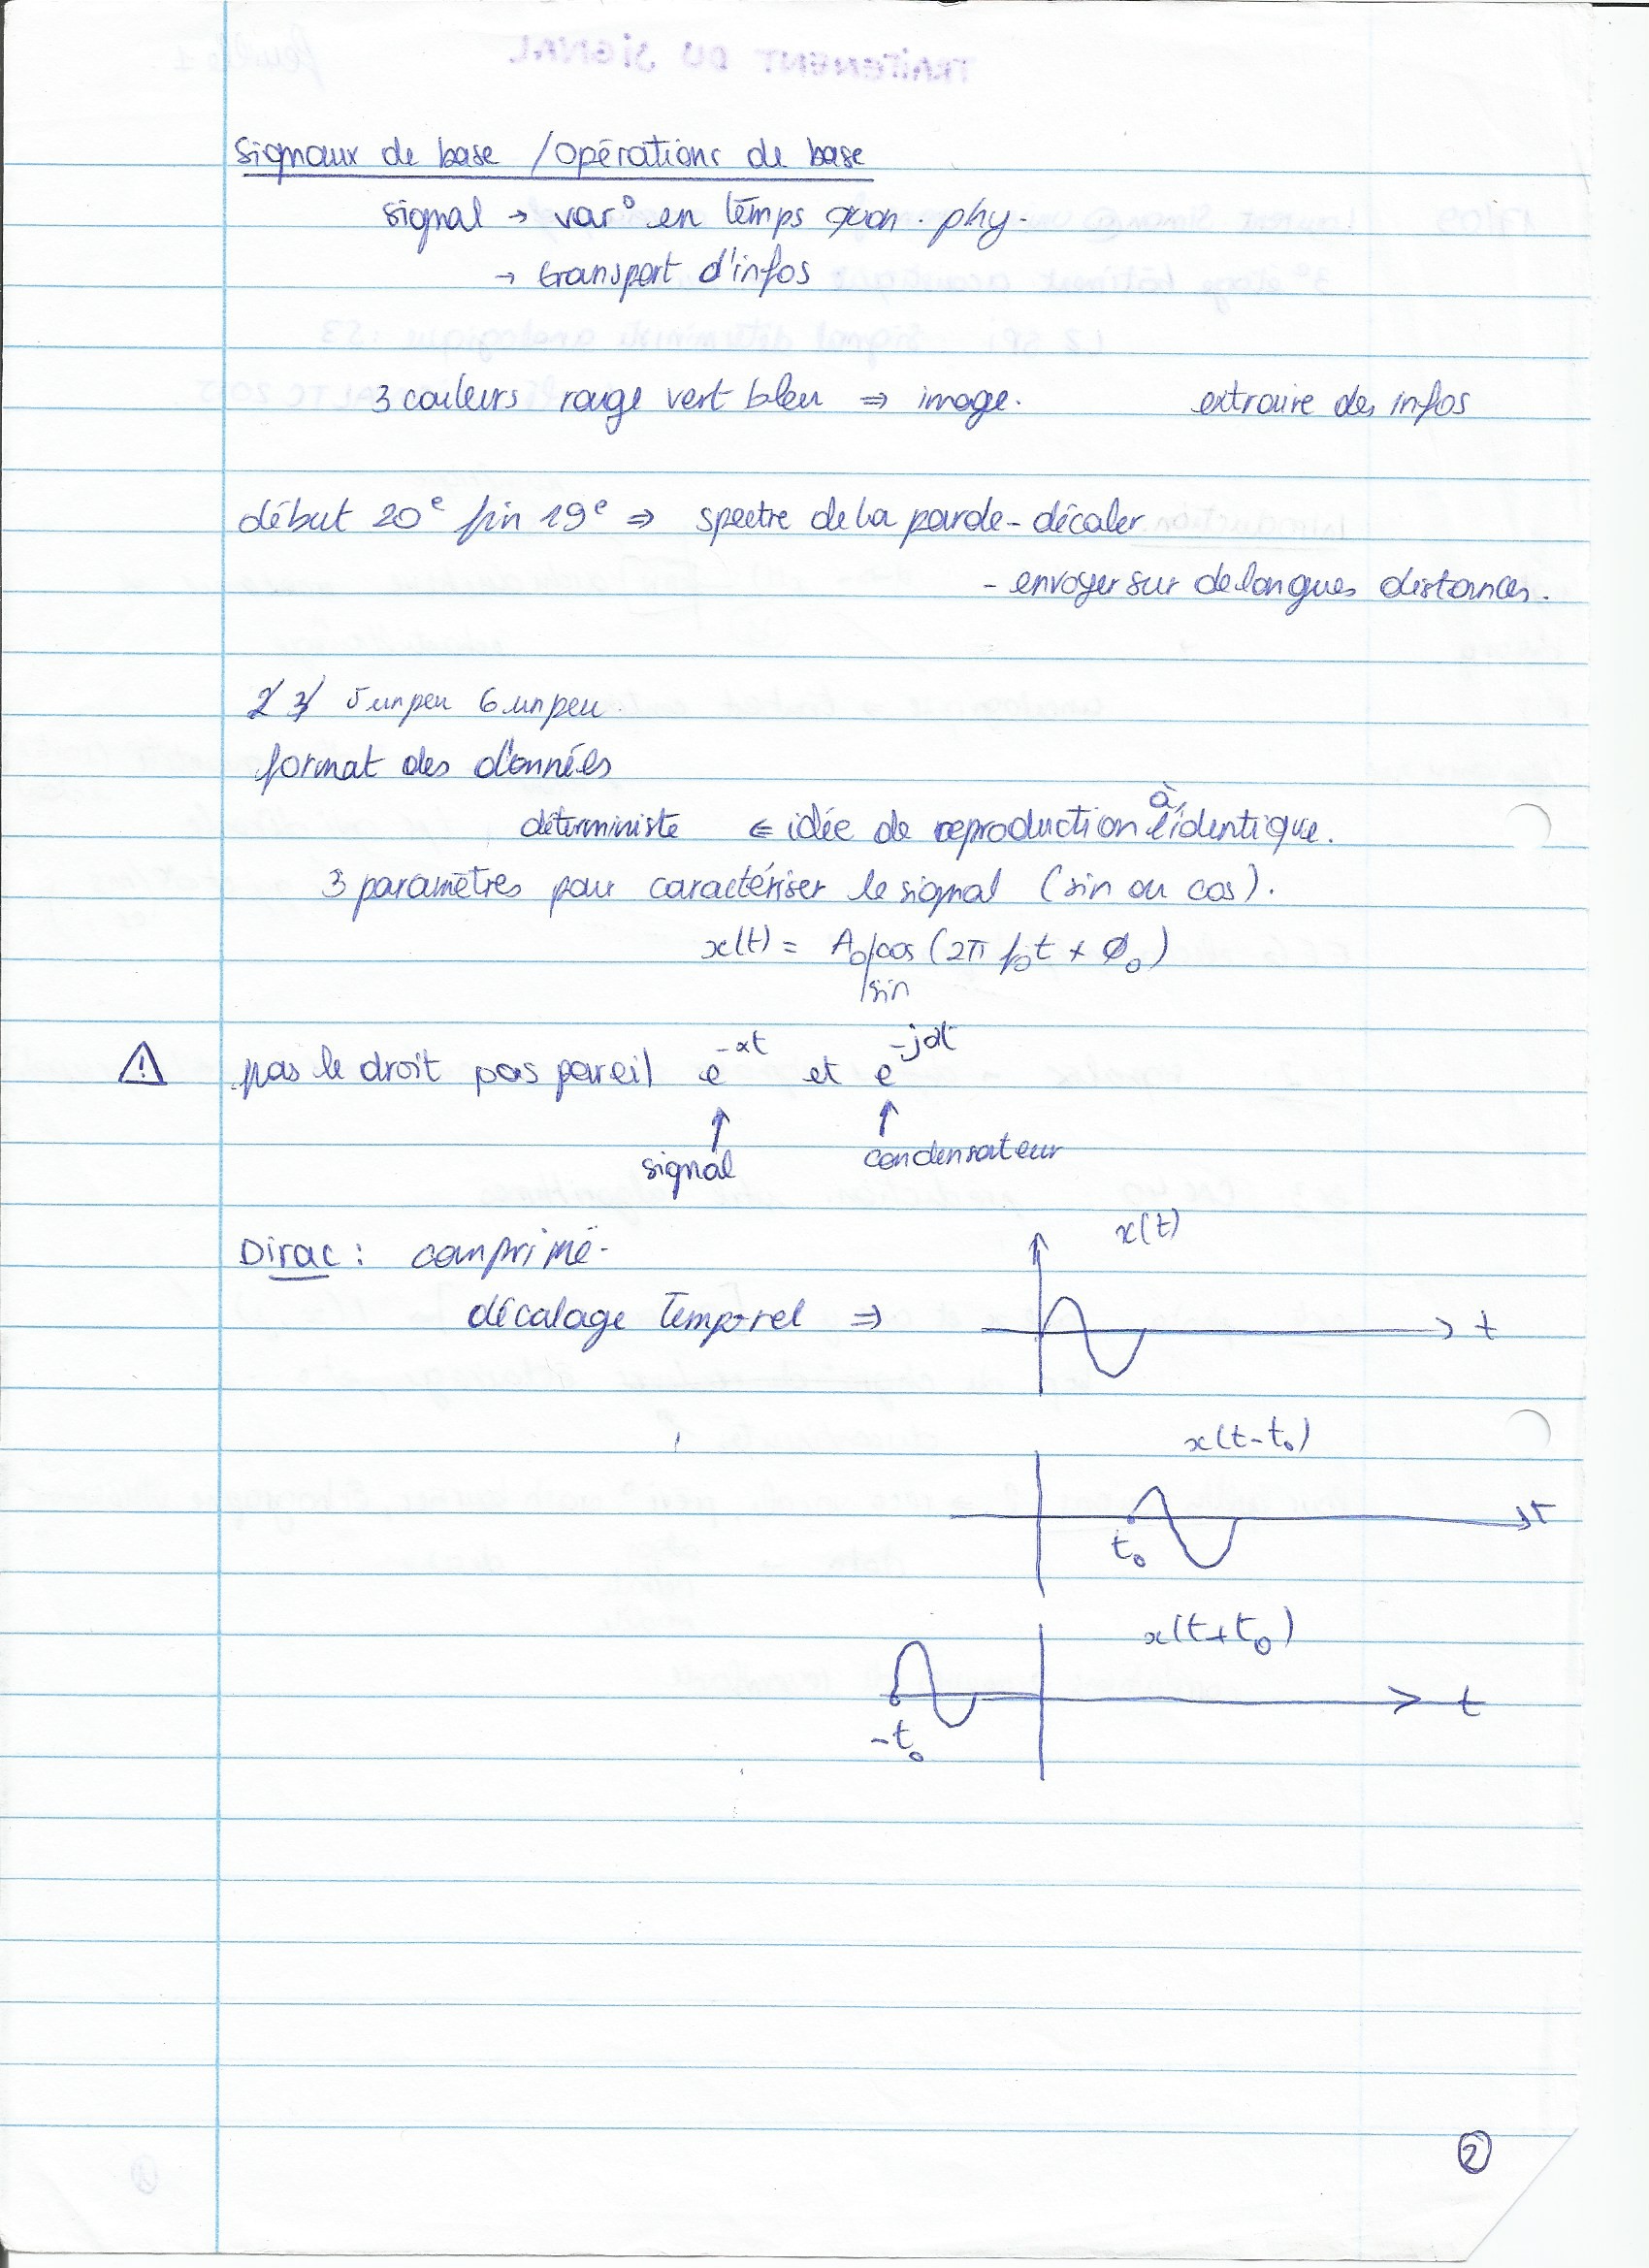 Signaux de base / Opérations de base
signal → var° en temps quan. phy.
→ transport d'infos
3 couleurs rouge vert bleu ⇒ image. extraire des infos
début 20e fin 19e ⇒ spectre de la parole - décaler
- envoyer sur de longues distances.
2 3 5 un peu 6 un peu
format des données
déterministe ⇐ idée de reproduction à l'identique.
3 paramètres pour caractériser le signal (sin ou cos).
x(t) = A0 cos (2π f0 t + Φ0)
sin
⚠ pas le droit pas pareil e^-αt et e^-jαt
↑ ↑
signal condensateur
Dirac : comprimé.
x(t)
décalage temporel ⇒ t
x(t-t0)
t
t0
x(t+t0)
t
-t0
2